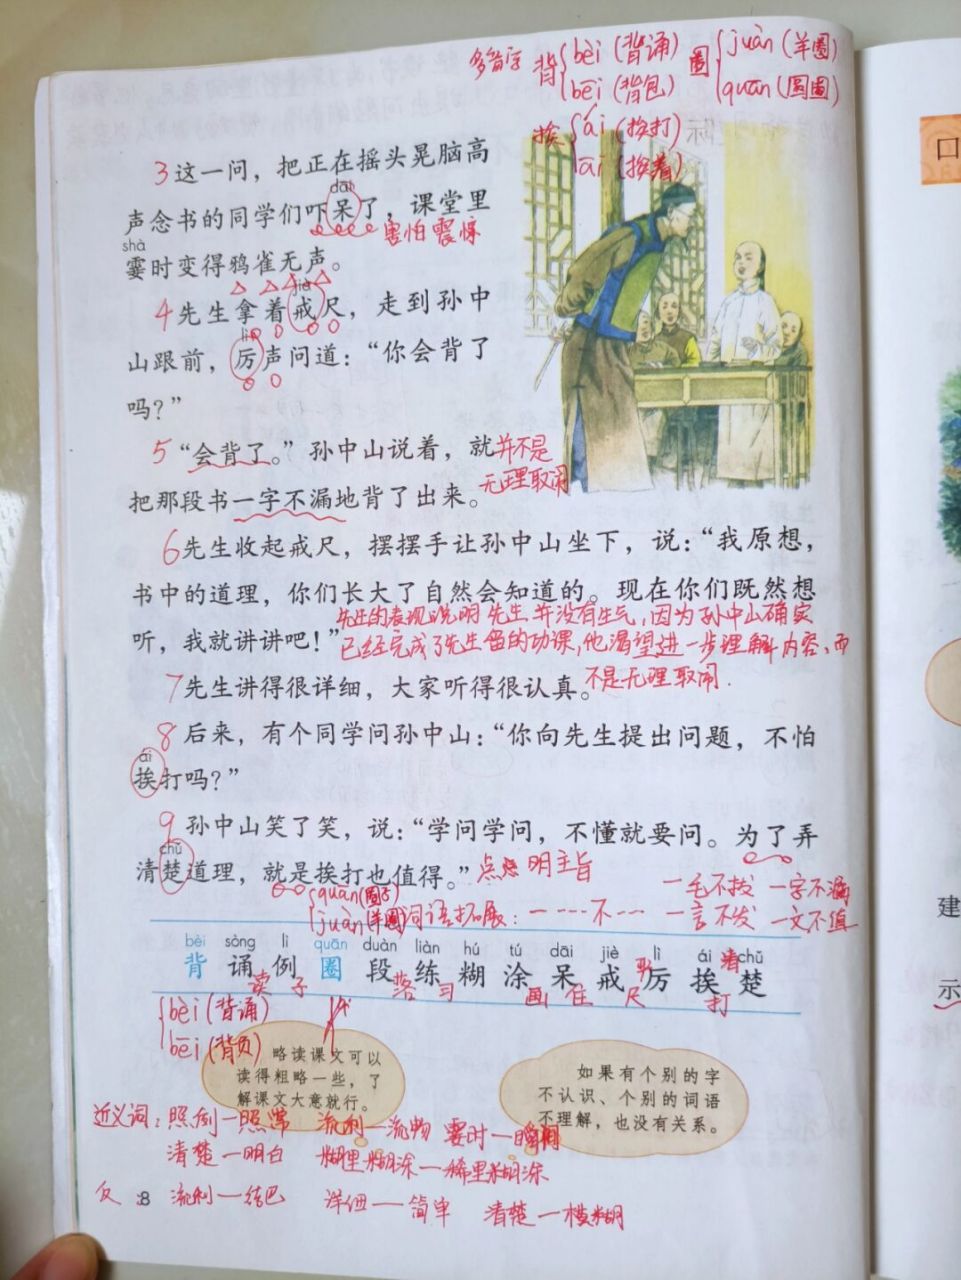 多音字 背 bèi (背诵) 圈 juàn (羊圈)
bēi (背包) quān (圆圈)
挨 ái (挨打)
āi (挨着)
3 这一问，把正在摇头晃脑高
dāi
声念书的同学们吓呆了，课堂里
害怕 震惊
shà
霎时变得鸦雀无声。
jiè
4 先生拿着戒尺，走到孙中
lì
山跟前，厉声问道：“你会背了
吗？”
5 “会背了。”孙中山说着，就
并不是
无理取闹
把那段书一字不漏地背了出来。
6 先生收起戒尺，摆摆手让孙中山坐下，说：“我原想，
书中的道理，你们长大了自然会知道的。现在你们既然想
听，我就讲讲吧！”
先生的表现说明先生并没有生气，因为孙中山确实
已经完成了先生留的功课，他渴望进一步理解内容，而
不是无理取闹.
7 先生讲得很详细，大家听得很认真。
8 后来，有个同学问孙中山：“你向先生提出问题，不怕
ái
挨打吗？”
9 孙中山笑了笑，说：“学问学问，不懂就要问。为了弄
chǔ
清楚道理，就是挨打也值得。”
点明主旨
quān (圈子)
juàn (羊圈)
词语拓展：一---不--- 一毛不拔 一字不漏
一言不发 一文不值
bèi sòng lì quān duàn liàn hú tú dāi jiè lì ái chǔ
背 诵 例 圈 段 练 糊 涂 呆 戒 厉 挨 楚
读 子 落 习 画 住 尺 打 清
bèi (背诵)
bēi (背负)
略读课文可以
读得粗略一些，了
解课文大意就行。
如果有个别的字
不认识、个别的词语
不理解，也没有关系。
近义词：照例—照常 流利—流畅 霎时—瞬间
清楚—明白 糊里糊涂—稀里糊涂
反 流利—结巴 详细—简单 清楚—模糊
8
口
建
示